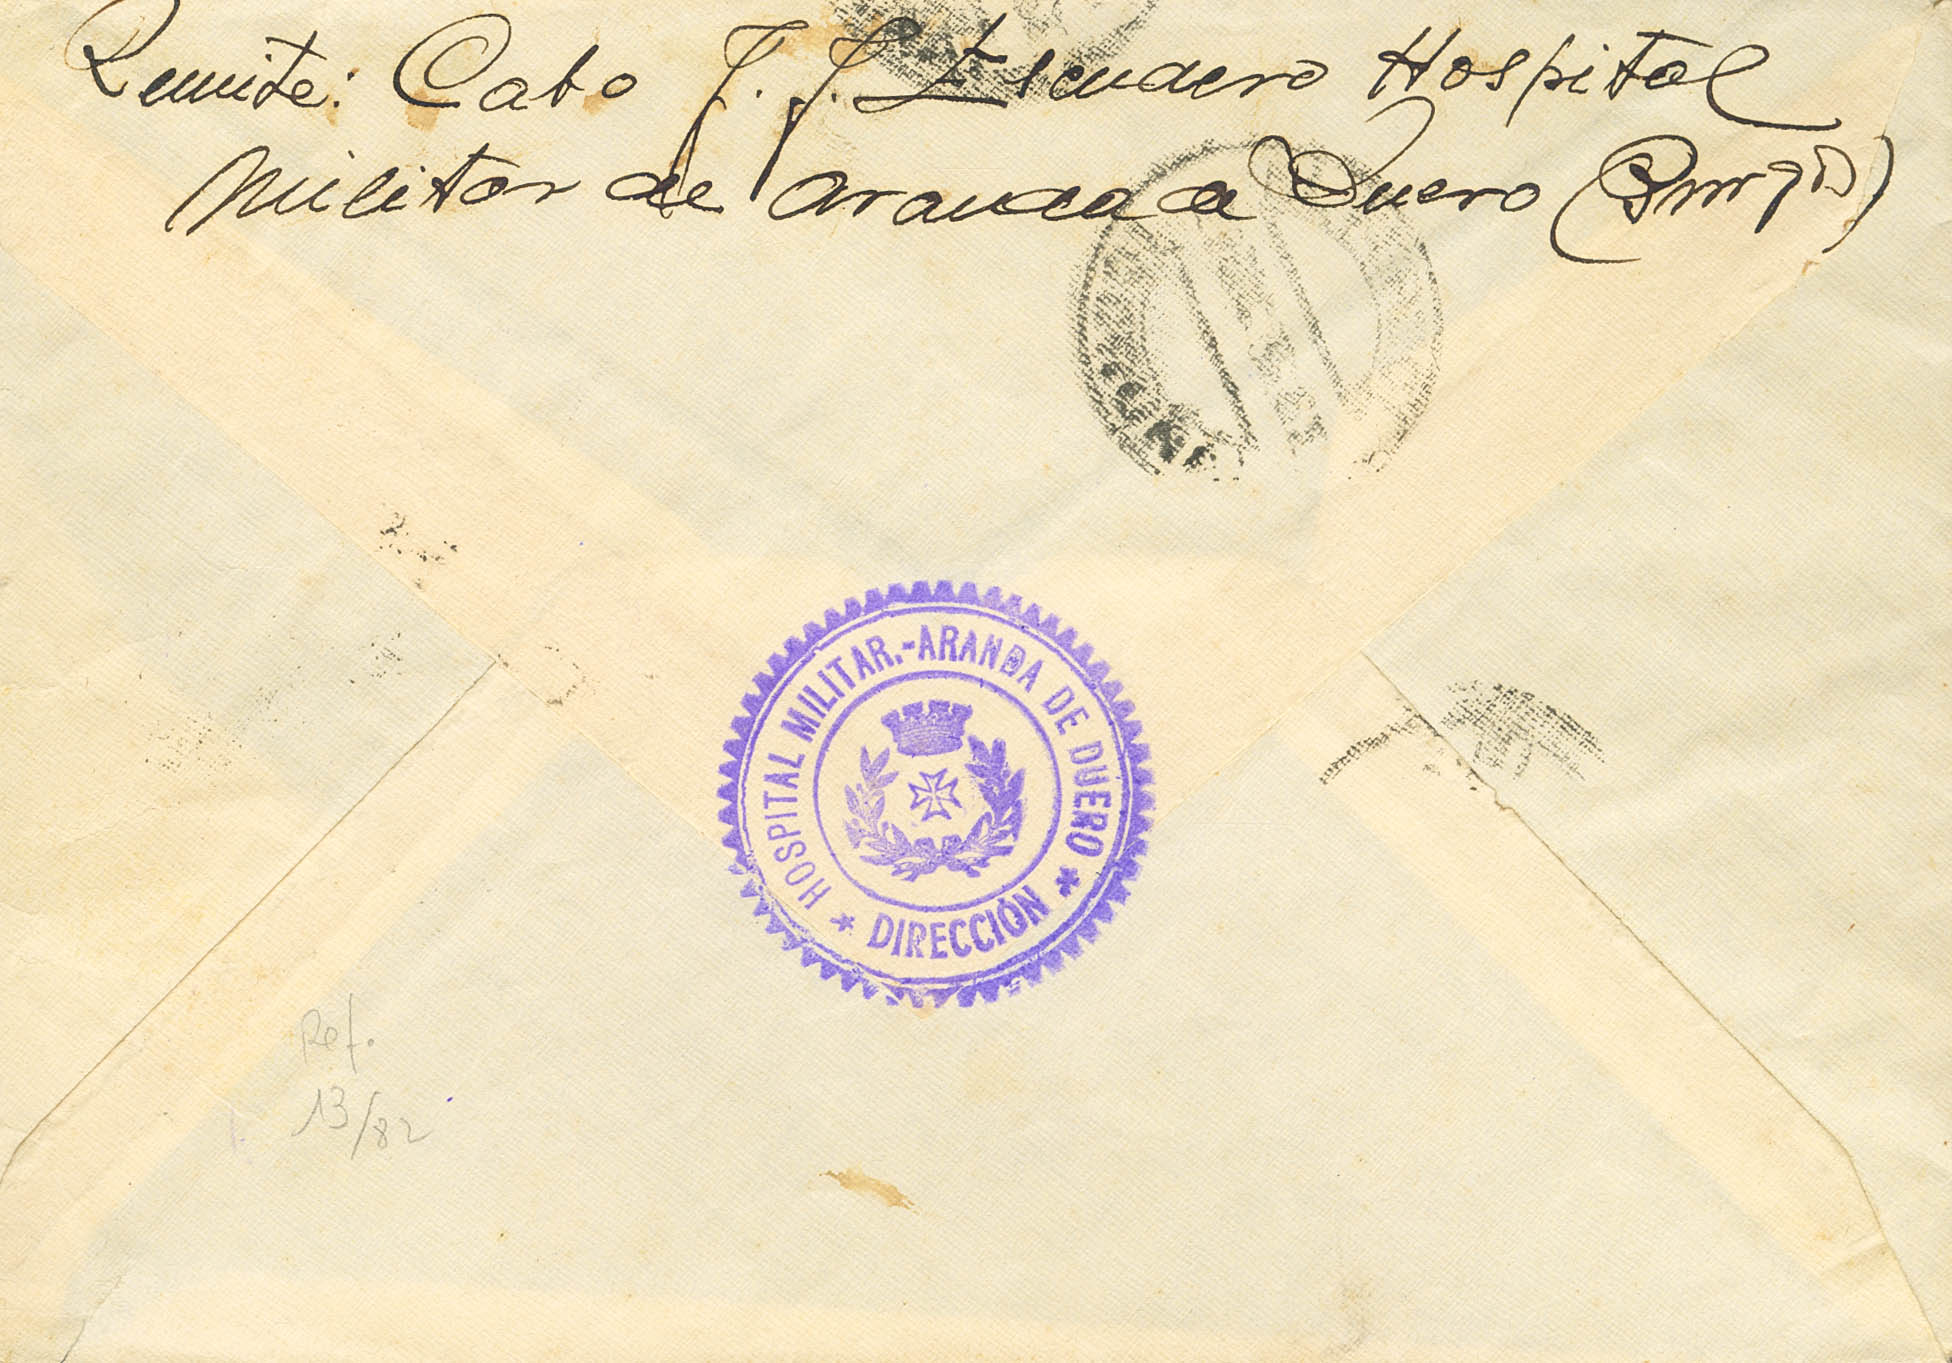 Remite: Cabo J. J. Escudero Hospital
Militar de Aranda de Duero (Burgos)
HOSPITAL MILITAR.-ARANDA DE DUERO
* DIRECCIÓN *
Ref.
13/82